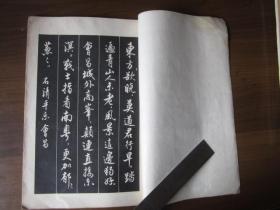 東方欲曉，莫道君行早。踏
遍青山人未老，風景這邊獨好
會昌城外高峯，顛連直接東
溟，戰士指看南粤，更加郁々
蔥々。 右清平樂會昌